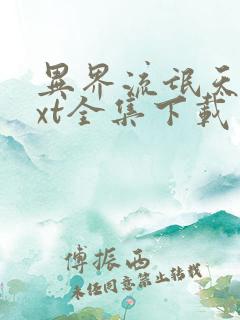 異界流氓天
xt全集下載
傅振西
未经同意禁止转载